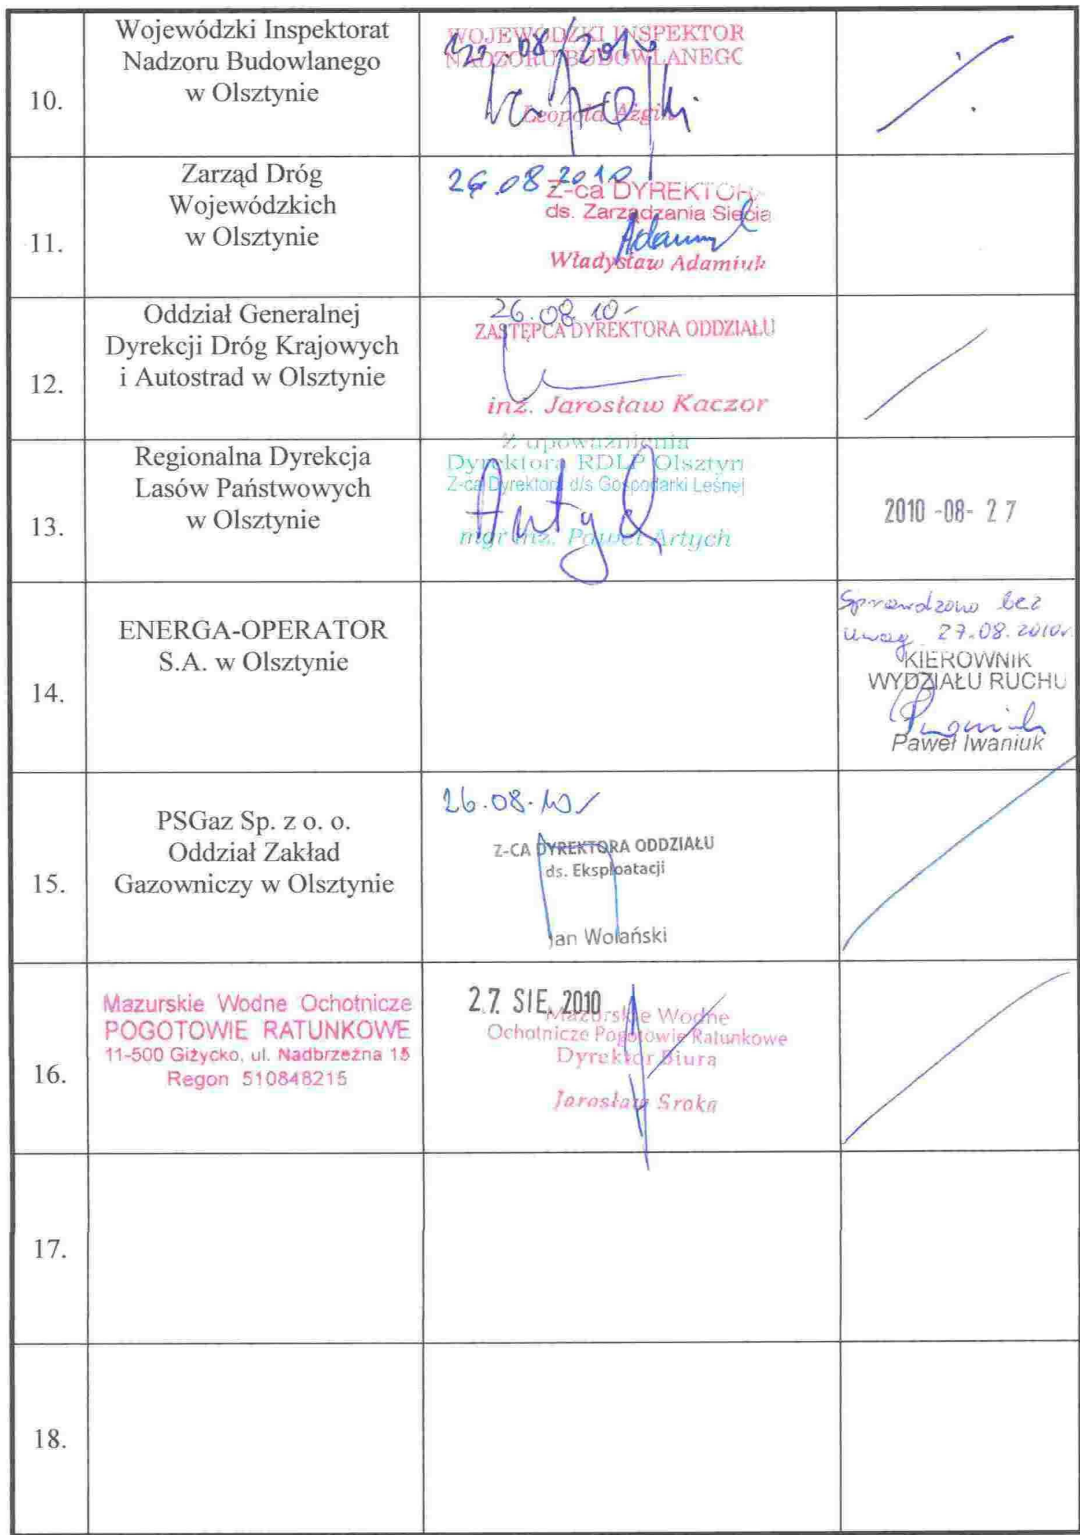 10.
Wojewódzki Inspektorat
Nadzoru Budowlanego
w Olsztynie
WOJEWÓDZKI INSPEKTOR
NADZORU BUDOWLANEGO
08/2010
Leopold
11.
Zarząd Dróg
Wojewódzkich
w Olsztynie
26.08.2010
Z-ca DYREKTORA
ds. Zarządzania Siecią
Władysław Adamiuk
12.
Oddział Generalnej
Dyrekcji Dróg Krajowych
i Autostrad w Olsztynie
26.08.10
ZASTĘPCA DYREKTORA ODDZIAŁU
inż. Jarosław Kaczor
13.
Regionalna Dyrekcja
Lasów Państwowych
w Olsztynie
Z upoważnienia
Dyrektora RDLP Olsztyn
Z-ca Dyrektora d/s Gospodarki Leśnej
mgr inż. Paweł Artych
2010 -08- 27
14.
ENERGA-OPERATOR
S.A. w Olsztynie
Sprawdzono bez
uwag 27.08.2010r.
KIEROWNIK
WYDZIAŁU RUCHU
Paweł Iwaniuk
15.
PSGaz Sp. z o. o.
Oddział Zakład
Gazowniczy w Olsztynie
26.08.10
Z-CA DYREKTORA ODDZIAŁU
ds. Eksploatacji
Jan Wolański
16.
Mazurskie Wodne Ochotnicze
POGOTOWIE RATUNKOWE
11-500 Giżycko, ul. Nadbrzeżna 15
Regon 510848215
27. SIE. 2010
Mazurskie Wodne
Ochotnicze Pogotowie Ratunkowe
Dyrektor Biura
Jarosław Sroka
17.
18.